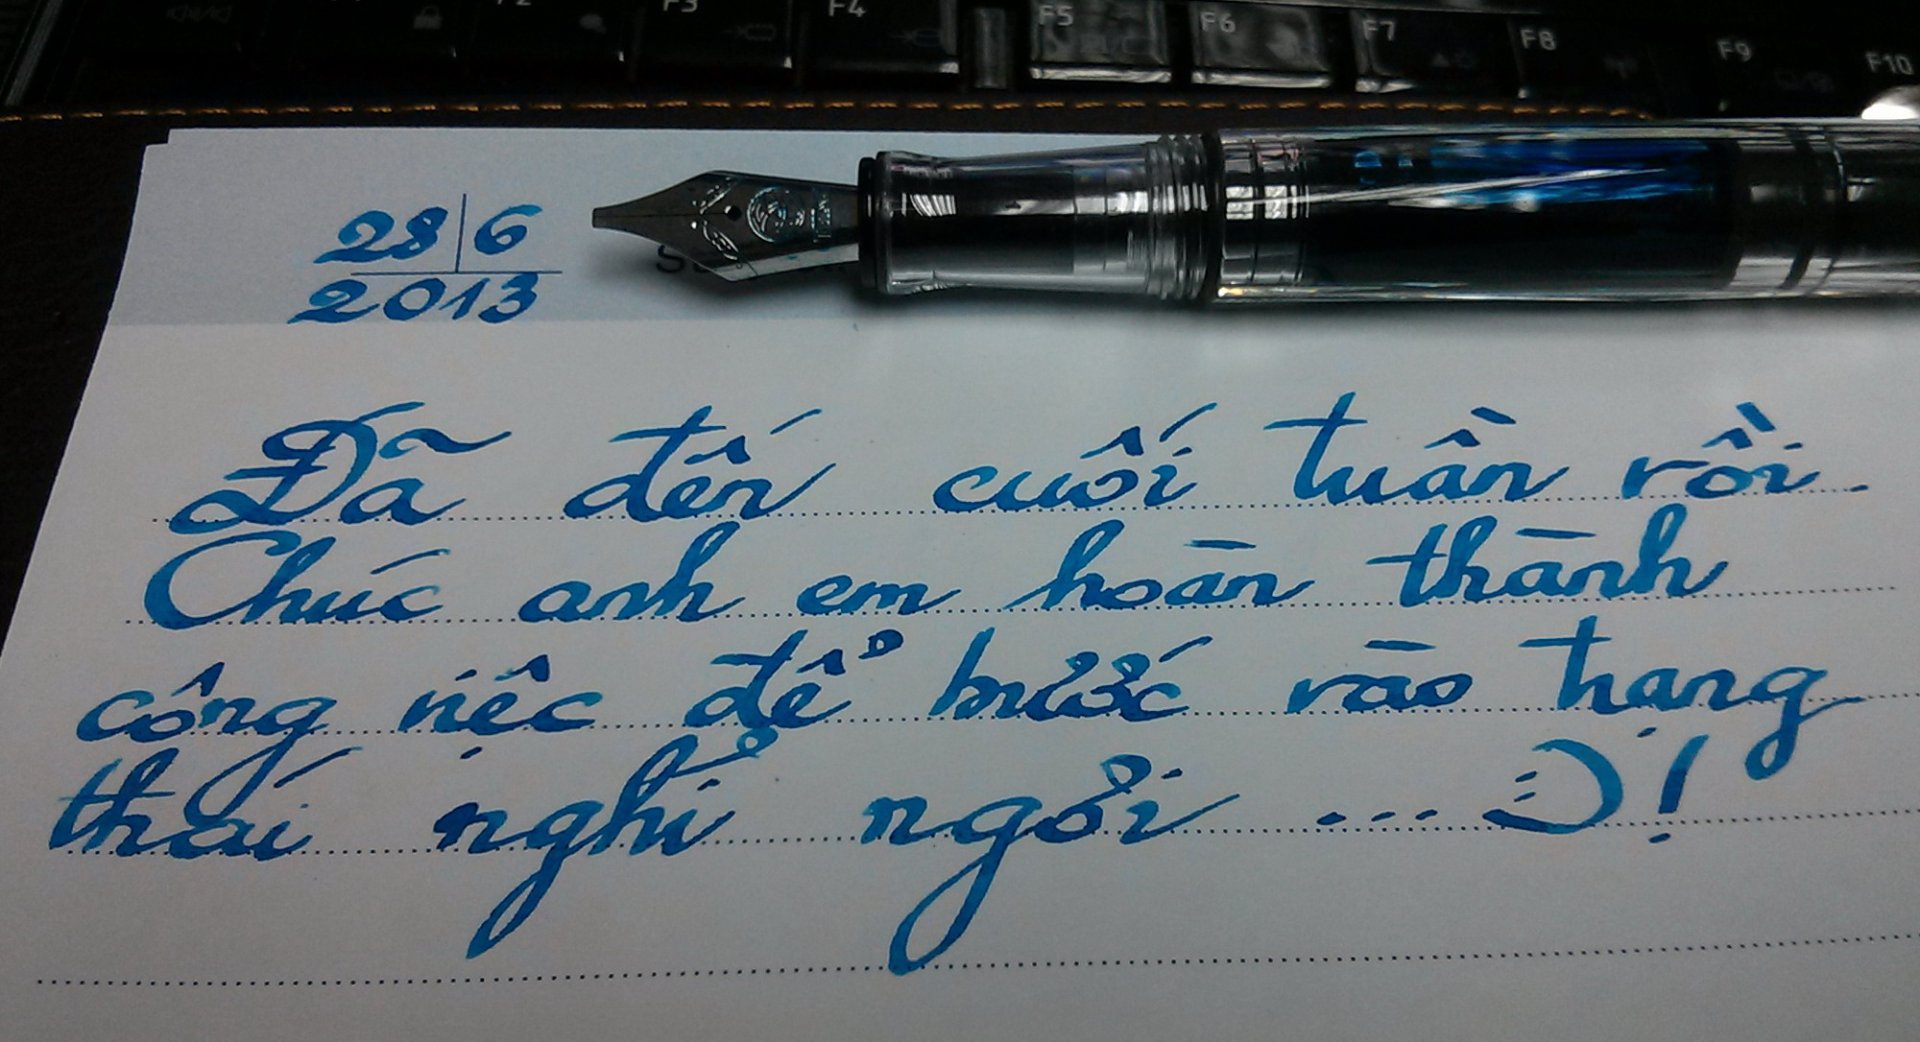 F2 F3 F4 F5 F6 F7 F8 F9 F10
28 6
2013
Đã đến cuối tuần rồi.
Chúc anh em hoàn thành
công việc để bước vào trạng
thái nghỉ ngơi ... :)!